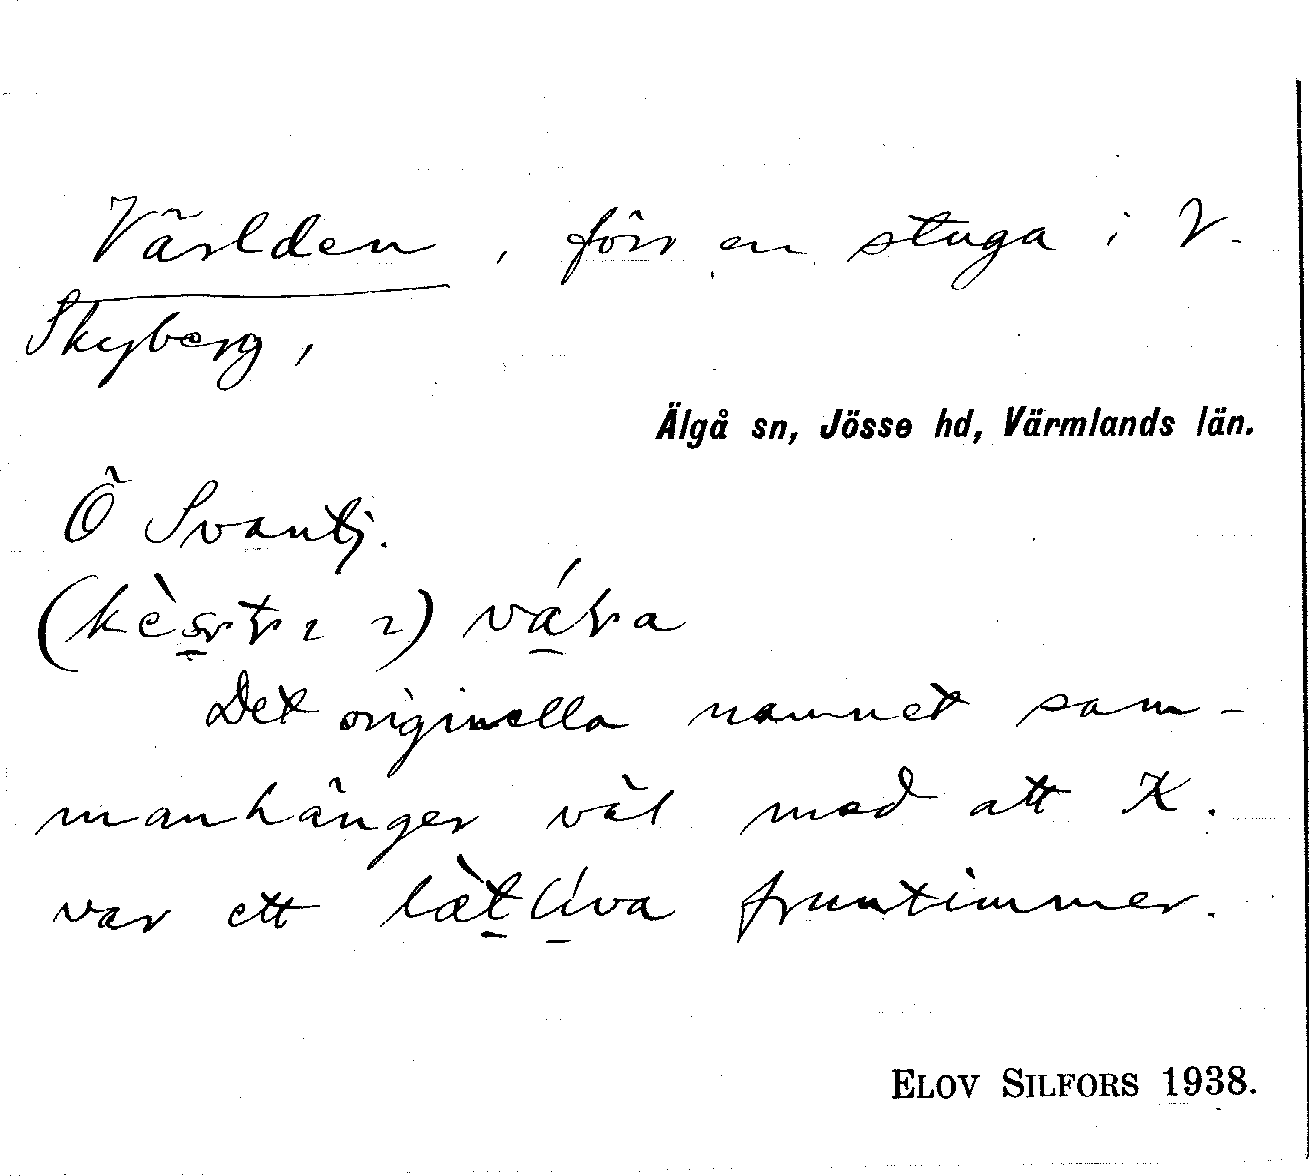 Världen, förr en stuga i V.
Skyberg,
Älgå sn, Jösse hd, Värmlands län.
Ö Svantj.
Det originella namnet sam-
manhänger väl med att K.
var ett lætliva fruntimmer.
ELOV SILFORS 1938.